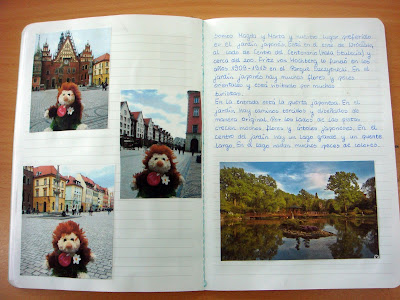 Somos Magda y Marta y nuestro lugar preferido
es el jardín japonés. Está en el este de Breslavia,
al lado de Centro del Centenario (Hala Stulecia) y
cerca del zoo. Fritz von Hochberg lo fundó en los
años 1909-1912 en el Parque Szczytnicki. En el
jardín japonés hay muchas flores y peces
orientales y está visitado por muchos
turistas.
En la entrada está la puerta japonesa. En el
jardín hay caminos torcidos y diseñados de
manera original. Por los lados de las pistas
crecen muchas flores y árboles japoneses. En el
centro del jardín hay un lago grande y un puente
largo. En el lago nadan muchos peces de colores.